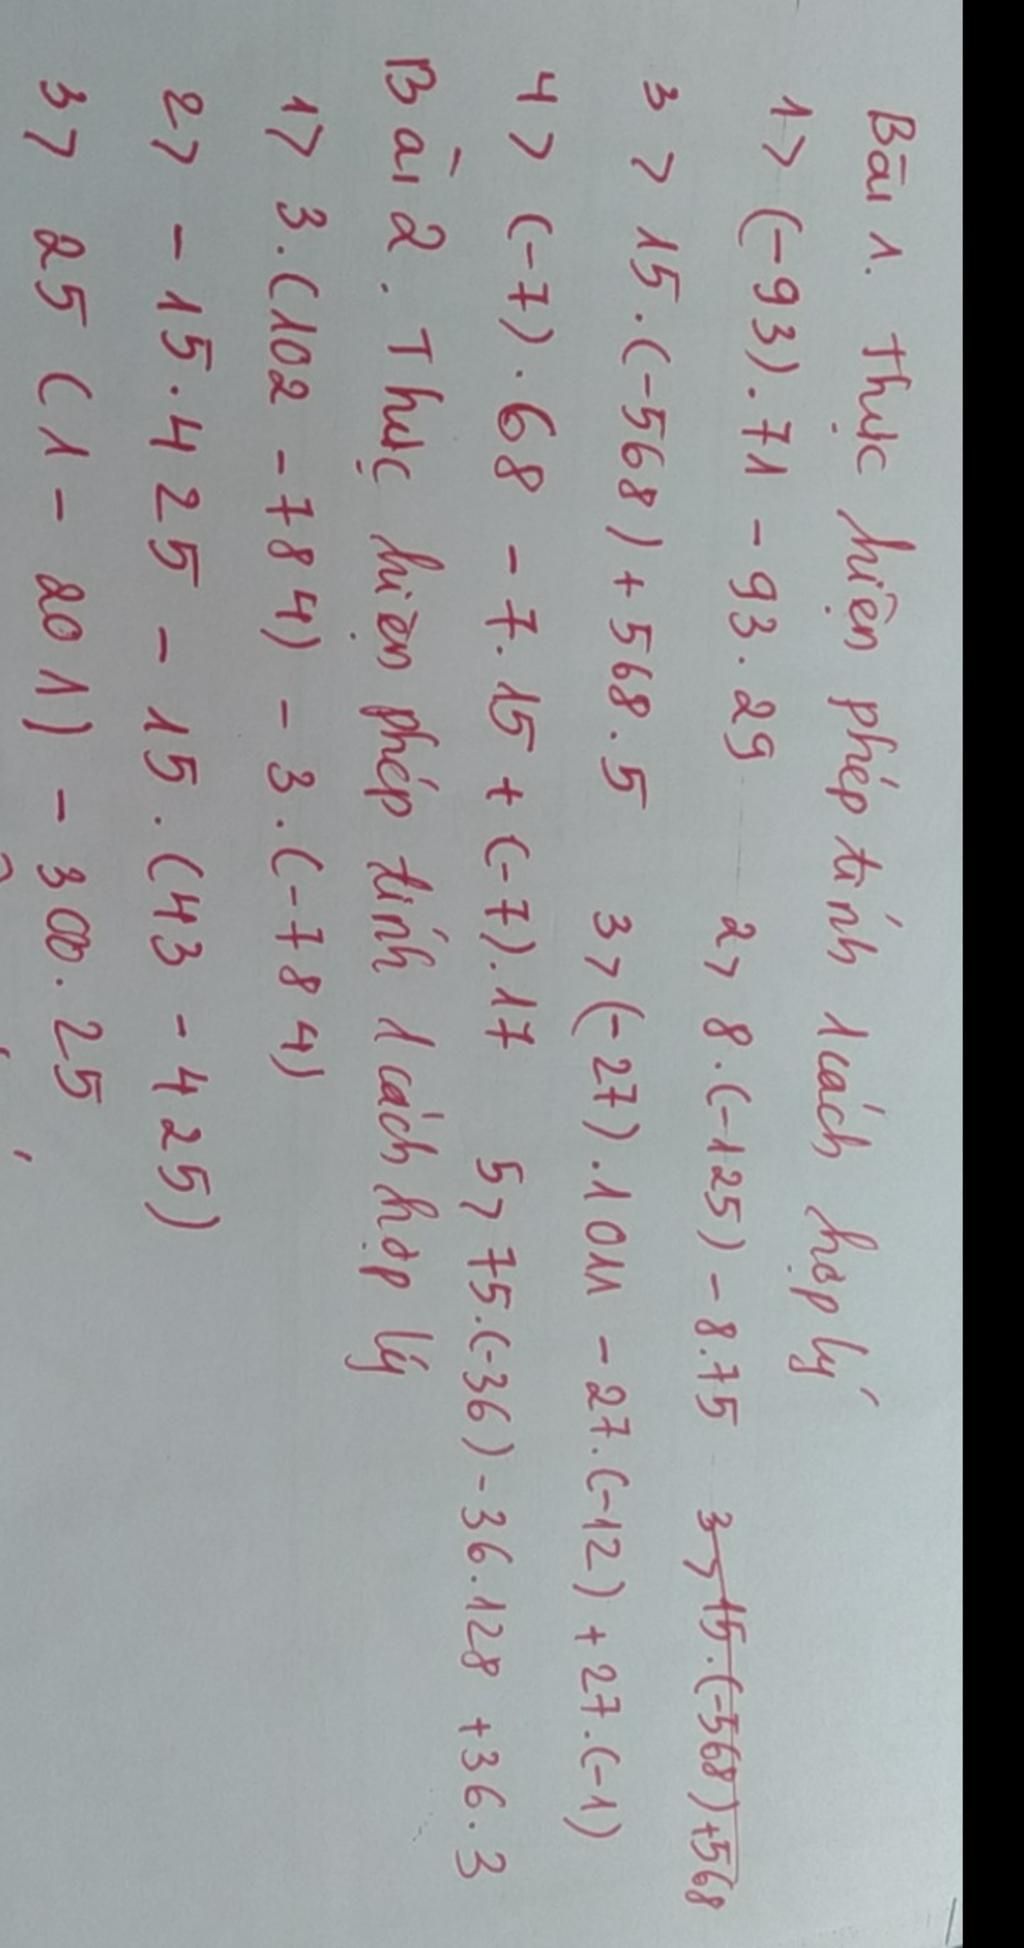 Bài 1. Thực hiện phép tính 1 cách hợp lý
1> (-93).71 - 93.29 2> 8.(-125) - 8.75 3> 15.(-568)+568
3> 15.(-568)+568.5 3> (-27).1011 - 27.(-12) + 27.(-1)
4> (-7).68 - 7.15 + (-7).17 5> 75.(-36) - 36.128 + 36.3
Bài 2. Thực hiện phép tính 1 cách hợp lý
1> 3.(102 - 784) - 3.(-784)
2> - 15.425 - 15.(43 - 425)
3> 25 (1 - 201) - 300.25